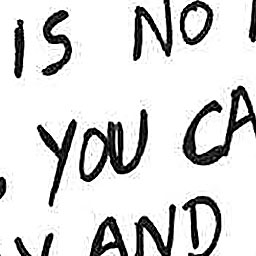 IS NO
, YOU CA
Y AND